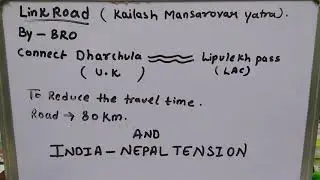 Link Road (Kailash Mansarovar yatra).
By - BRO
Connect Dharchula Lipulekh pass
(U.K) (LAC)
To Reduce the travel time.
Road → 80 Km.
AND
INDIA - NEPAL TENSION